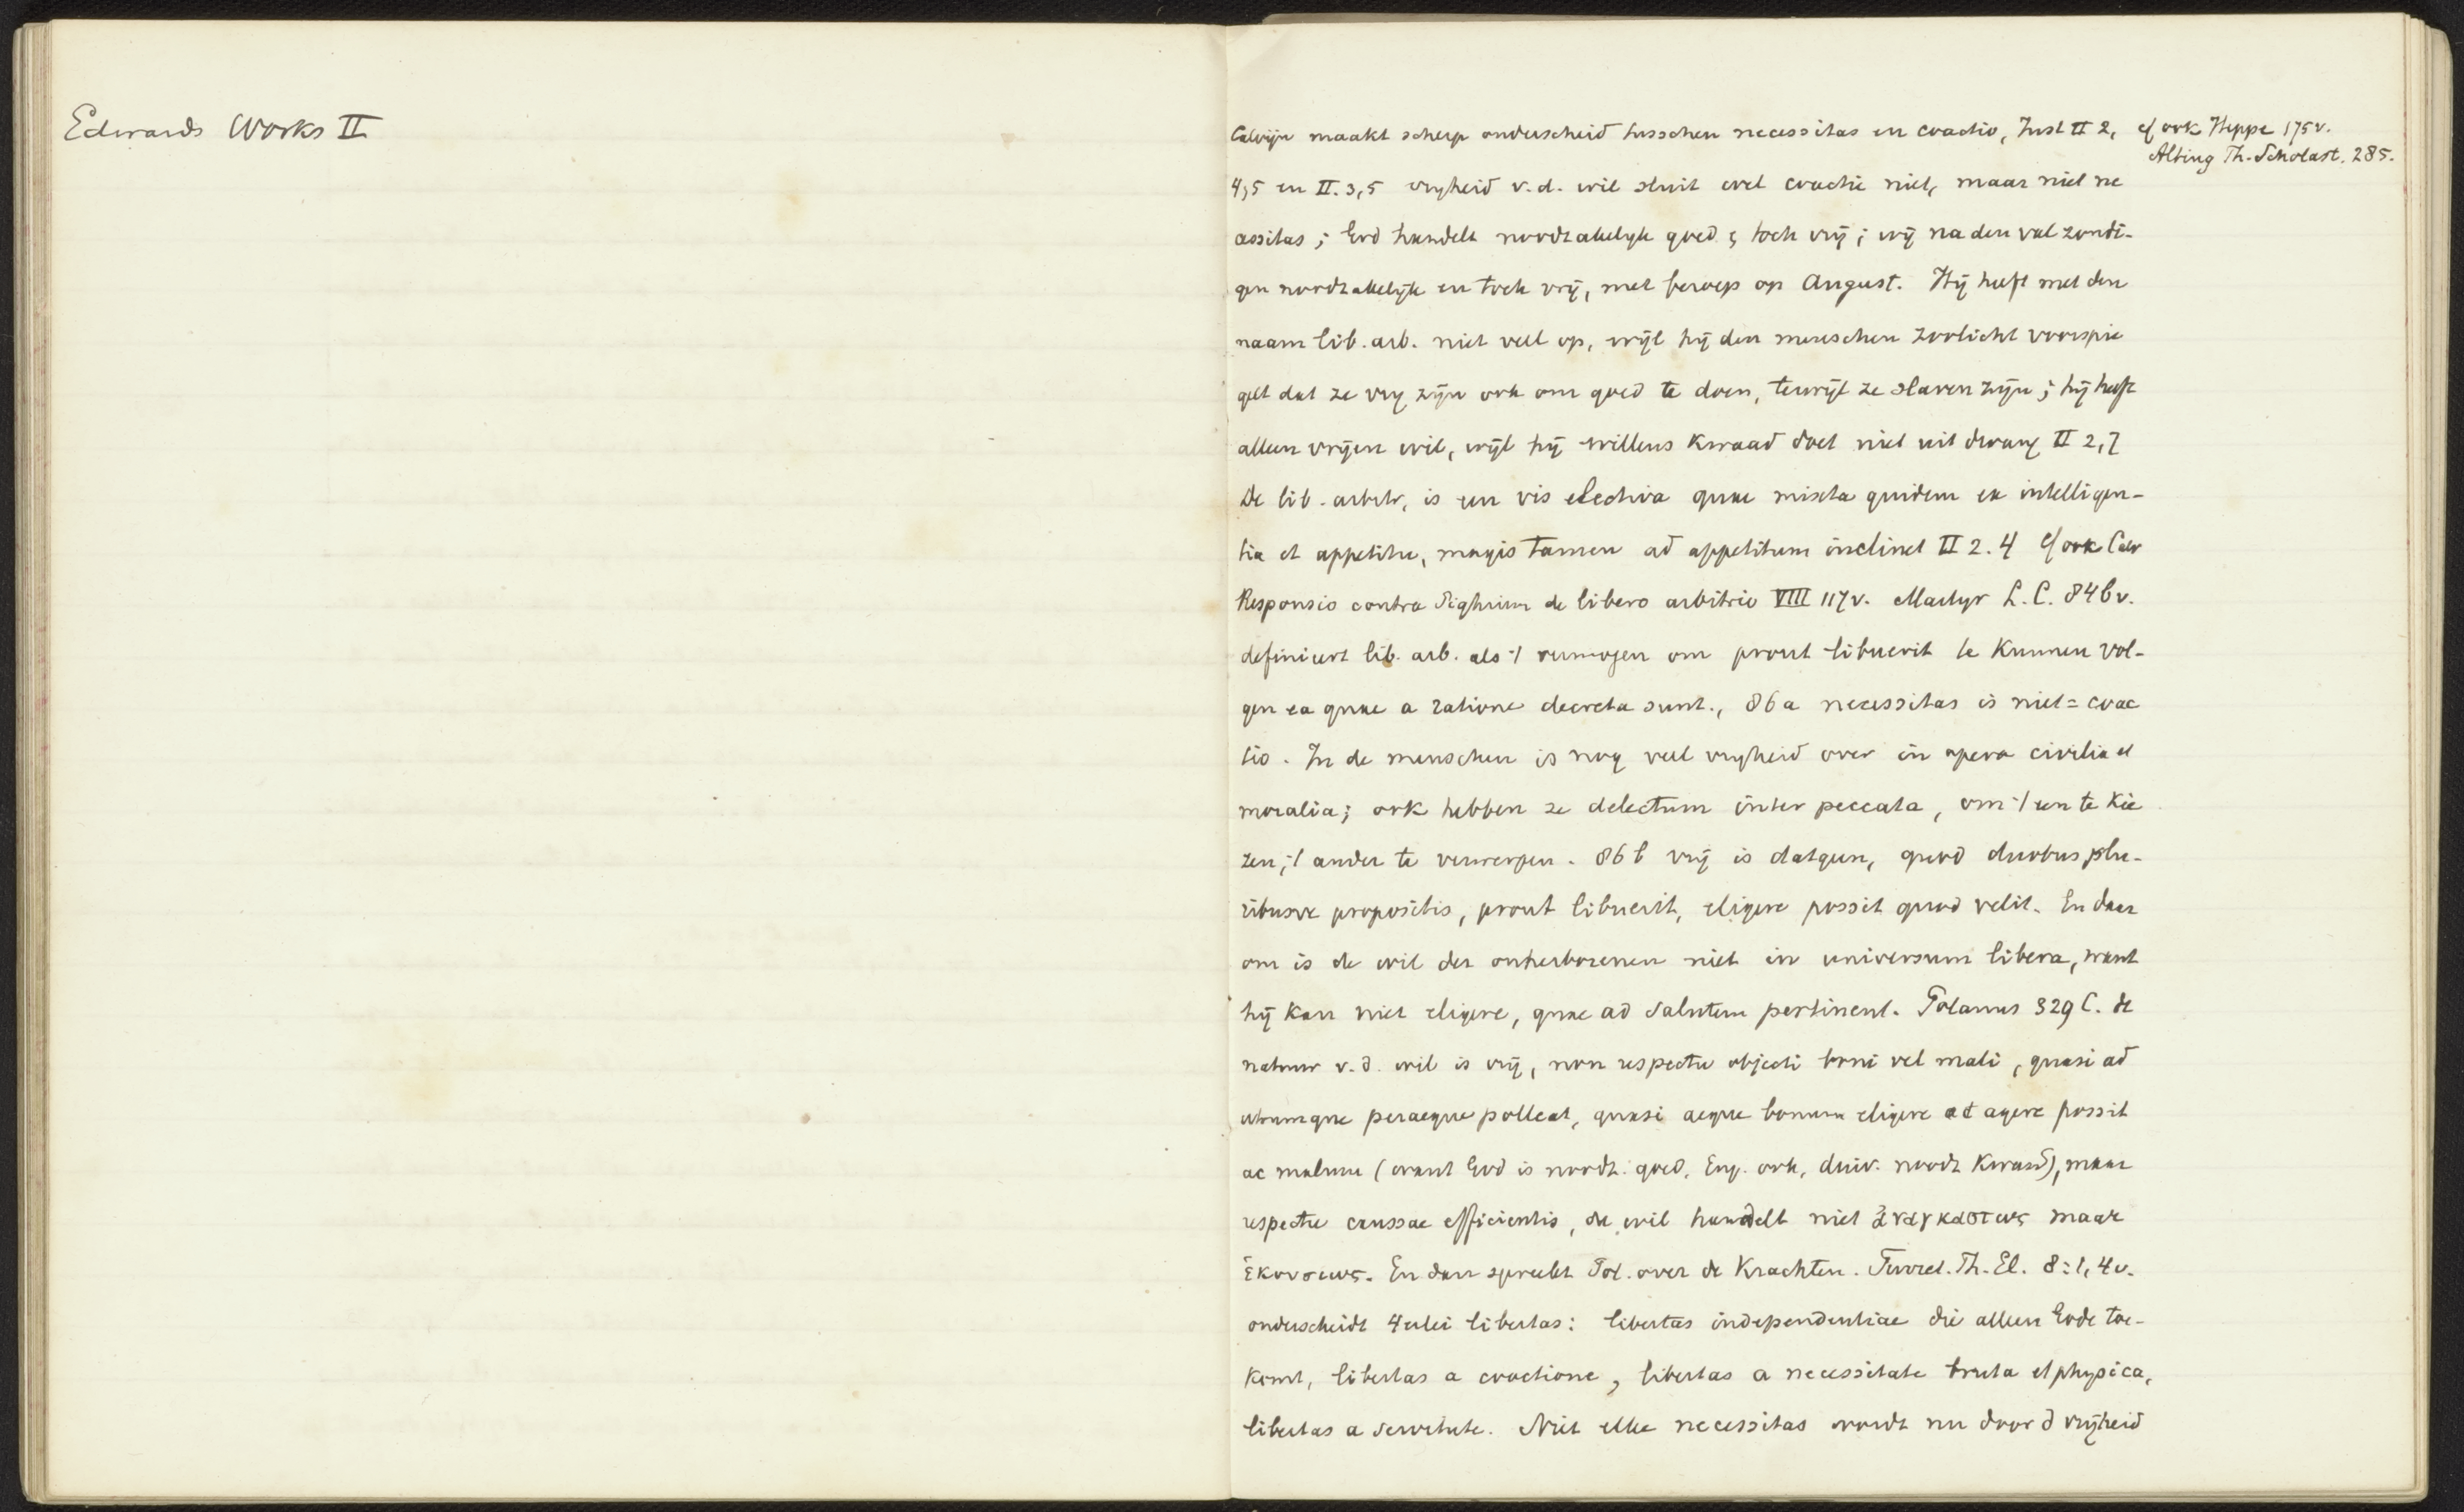 Edwards Works II
Calvijn maakt scherp onderscheid tusschen necessitas en coactio, Inst II 2,
cf ook Heppe 175v.
Alting Th. Scholast. 285.
4,5 en II. 3,5 vryheid v.d. wil sluit wel coactie niet, maar niet ne
cessitas; God handelt noodzakelyk goed & toch vrij; wij na den val zondi-
gen noodzakelijk en toch vrij, met beroep op August. Hij heeft met den
naam lib. arb. niet veel op, wijl hij den menschen zoolicht voorspie
gelt dat ze vry zijn ook om goed te doen, terwijl ze slaven zijn; hij heeft
alleen vrijen wil, wijl hij willens kwaad doet niet uit dwang II 2,7
De lib. arbitr, is een vis electiva quae mixta quidem ex intelligen-
tia et appetitu, magis tamen ad appetitum inclinet II 2.4 cf ook Calv
Responsio contra Pighium de libero arbitrio VIII 117v. Martyr L.C. 84b v.
definieert lib. arb. als 't vermogen om prout libuerit te kunnen vol-
gen ea quae a ratione decreta sunt., 86a necessitas is niet = coac
tio. In de menschen is nog veel vryheid over in opera civilia et
moralia; ook hebben ze delectum inter peccata, om 't een te kie
zen, 't ander te verwerpen. 86b vrij is datgeen, quod duobus plu-
ribusve propositis, prout libuerit, eligere possit quod velit. En daar
om is de wil der onherborenen niet in universum libera, want
hij kan niet eligere, quae ad salutem pertinent. Polanus 329 C. de
natuur v.d. wil is vrij, non respectu objecti boni vel mali, quasi ad
utrumque peraeque polleat, quasi aeque bonum eligere at agere possit
ac malum (want God is noodz. goed, Eng. ook, duiv. noodz kwaad), maar
respectu caussae efficientis, de wil handelt niet ἀναγκαστως maar
ἑκουσιως. En dan spreekt Pol. over de krachten. Turret. Th. El. 8:1, 4v.
onderscheidt 4erlei libertas: libertas independentiae die alleen Gode toe-
komt, libertas a coactione, libertas a necessitate bruta et physica,
libertas a servitute. Niet elke necessitas wordt nu door d vrijheid